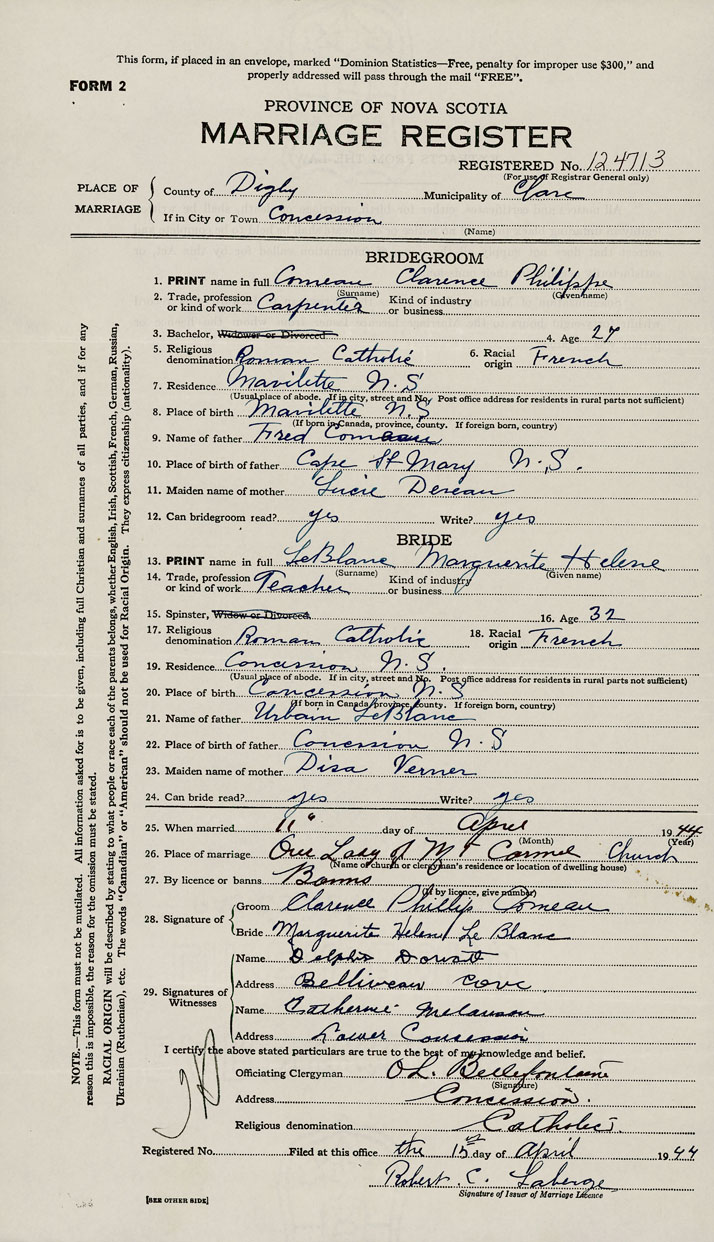 This form, if placed in an envelope, marked "Dominion Statistics—Free, penalty for improper use $300," and
properly addressed will pass through the mail "FREE".
FORM 2
PROVINCE OF NOVA SCOTIA
MARRIAGE REGISTER
REGISTERED No. 124713
(For use of Registrar General only)
PLACE OF MARRIAGE
County of Digby Municipality of Clare
If in City or Town Concession
(Name)
BRIDEGROOM
1. PRINT name in full Comeau Clarence Philippe
(Surname) (Given name)
2. Trade, profession or kind of work Carpenter Kind of industry or business
3. Bachelor, Widower or Divorced 4. Age 27
5. Religious denomination Roman Catholic 6. Racial origin French
7. Residence Mavilette N.S
(Usual place of abode. If in city, street and No. Post office address for residents in rural parts not sufficient)
8. Place of birth Mavilette N.S
(If born in Canada, province, county. If foreign born, country)
9. Name of father Fred Comeau
10. Place of birth of father Cape St Mary N.S.
11. Maiden name of mother Lucie Deveau
12. Can bridegroom read? yes Write? yes
BRIDE
13. PRINT name in full LeBlanc Marguerite Helene
(Surname) (Given name)
14. Trade, profession or kind of work Teacher Kind of industry or business
15. Spinster, Widow or Divorced 16. Age 32
17. Religious denomination Roman Catholic 18. Racial origin French
19. Residence Concession N.S.
(Usual place of abode. If in city, street and No. Post office address for residents in rural parts not sufficient)
20. Place of birth Concession N.S
(If born in Canada province, county. If foreign born, country)
21. Name of father Urbain LeBlanc
22. Place of birth of father Concession N.S
23. Maiden name of mother Disa Verner
24. Can bride read? yes Write? yes
25. When married 11" day of April 1944
(Month) (Year)
26. Place of marriage Our Lady of Mt Carmel Church
(Name of church or clergyman's residence or location of dwelling house)
27. By licence or banns Banns
(If by licence, give number)
28. Signature of
Groom Clarence Phillip Comeau
Bride Marguerite Helene Le Blanc
29. Signatures of Witnesses
Name Delphis
Address Belliveau Cove
Name Catherine Melanson
Address Lower Concession
I certify the above stated particulars are true to the best of my knowledge and belief.
Officiating Clergyman Bellefontaine
(Signature)
Address Concession.
Religious denomination Catholic
Registered No. Filed at this office the 15 day of April 1944
Robert C. Laberge
Signature of Issuer of Marriage Licence
[SEE OTHER SIDE]
NOTE.—This form must not be mutilated. All information asked for is to be given, including full Christian and surnames of all parties, and if for any
reason this is impossible, the reason for the omission must be stated.
RACIAL ORIGIN will be described by stating to what people or race each of the parents belongs, whether English, Irish, Scottish, French, German, Russian,
Ukrainian (Ruthenian), etc. The words "Canadian" or "American" should not be used for Racial Origin. They express citizenship (nationality).